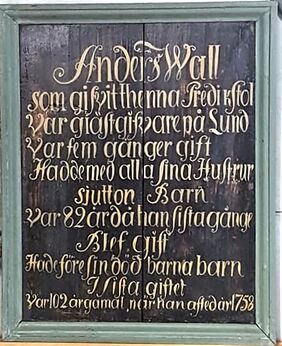 Anders Wall
som gifvit thenna Predikstol
Var giästgifvare på Lund
Var fem gånger gift
Hadde med alla sina Hustrur
sjutton Barn
Var 82 år då han sista gånge
Blef gift
Hade före sin död barna barn
I sista giftet
Var 102 år gamal, når han afled år 1758